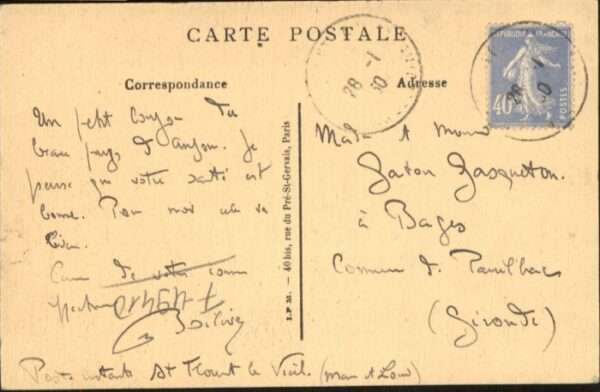 CARTE POSTALE
Correspondance
Un petit bonjour du
beau pays d'Anjou. Je
pense que votre santé est
bonne. Pour moi cela va
bien.
de votre
Poste restante St Florent le Vieil. (Maine et Loire)
I.P.M. — 40 bis, rue du Pré-St-Gervais, Paris
Adresse
28 - 1
30
RÉPUBLIQUE FRANÇAISE
40c
POSTES
28 - 1
30
Gaston Gasqueton.
à Bages
Commune de Pauillac
(Gironde)